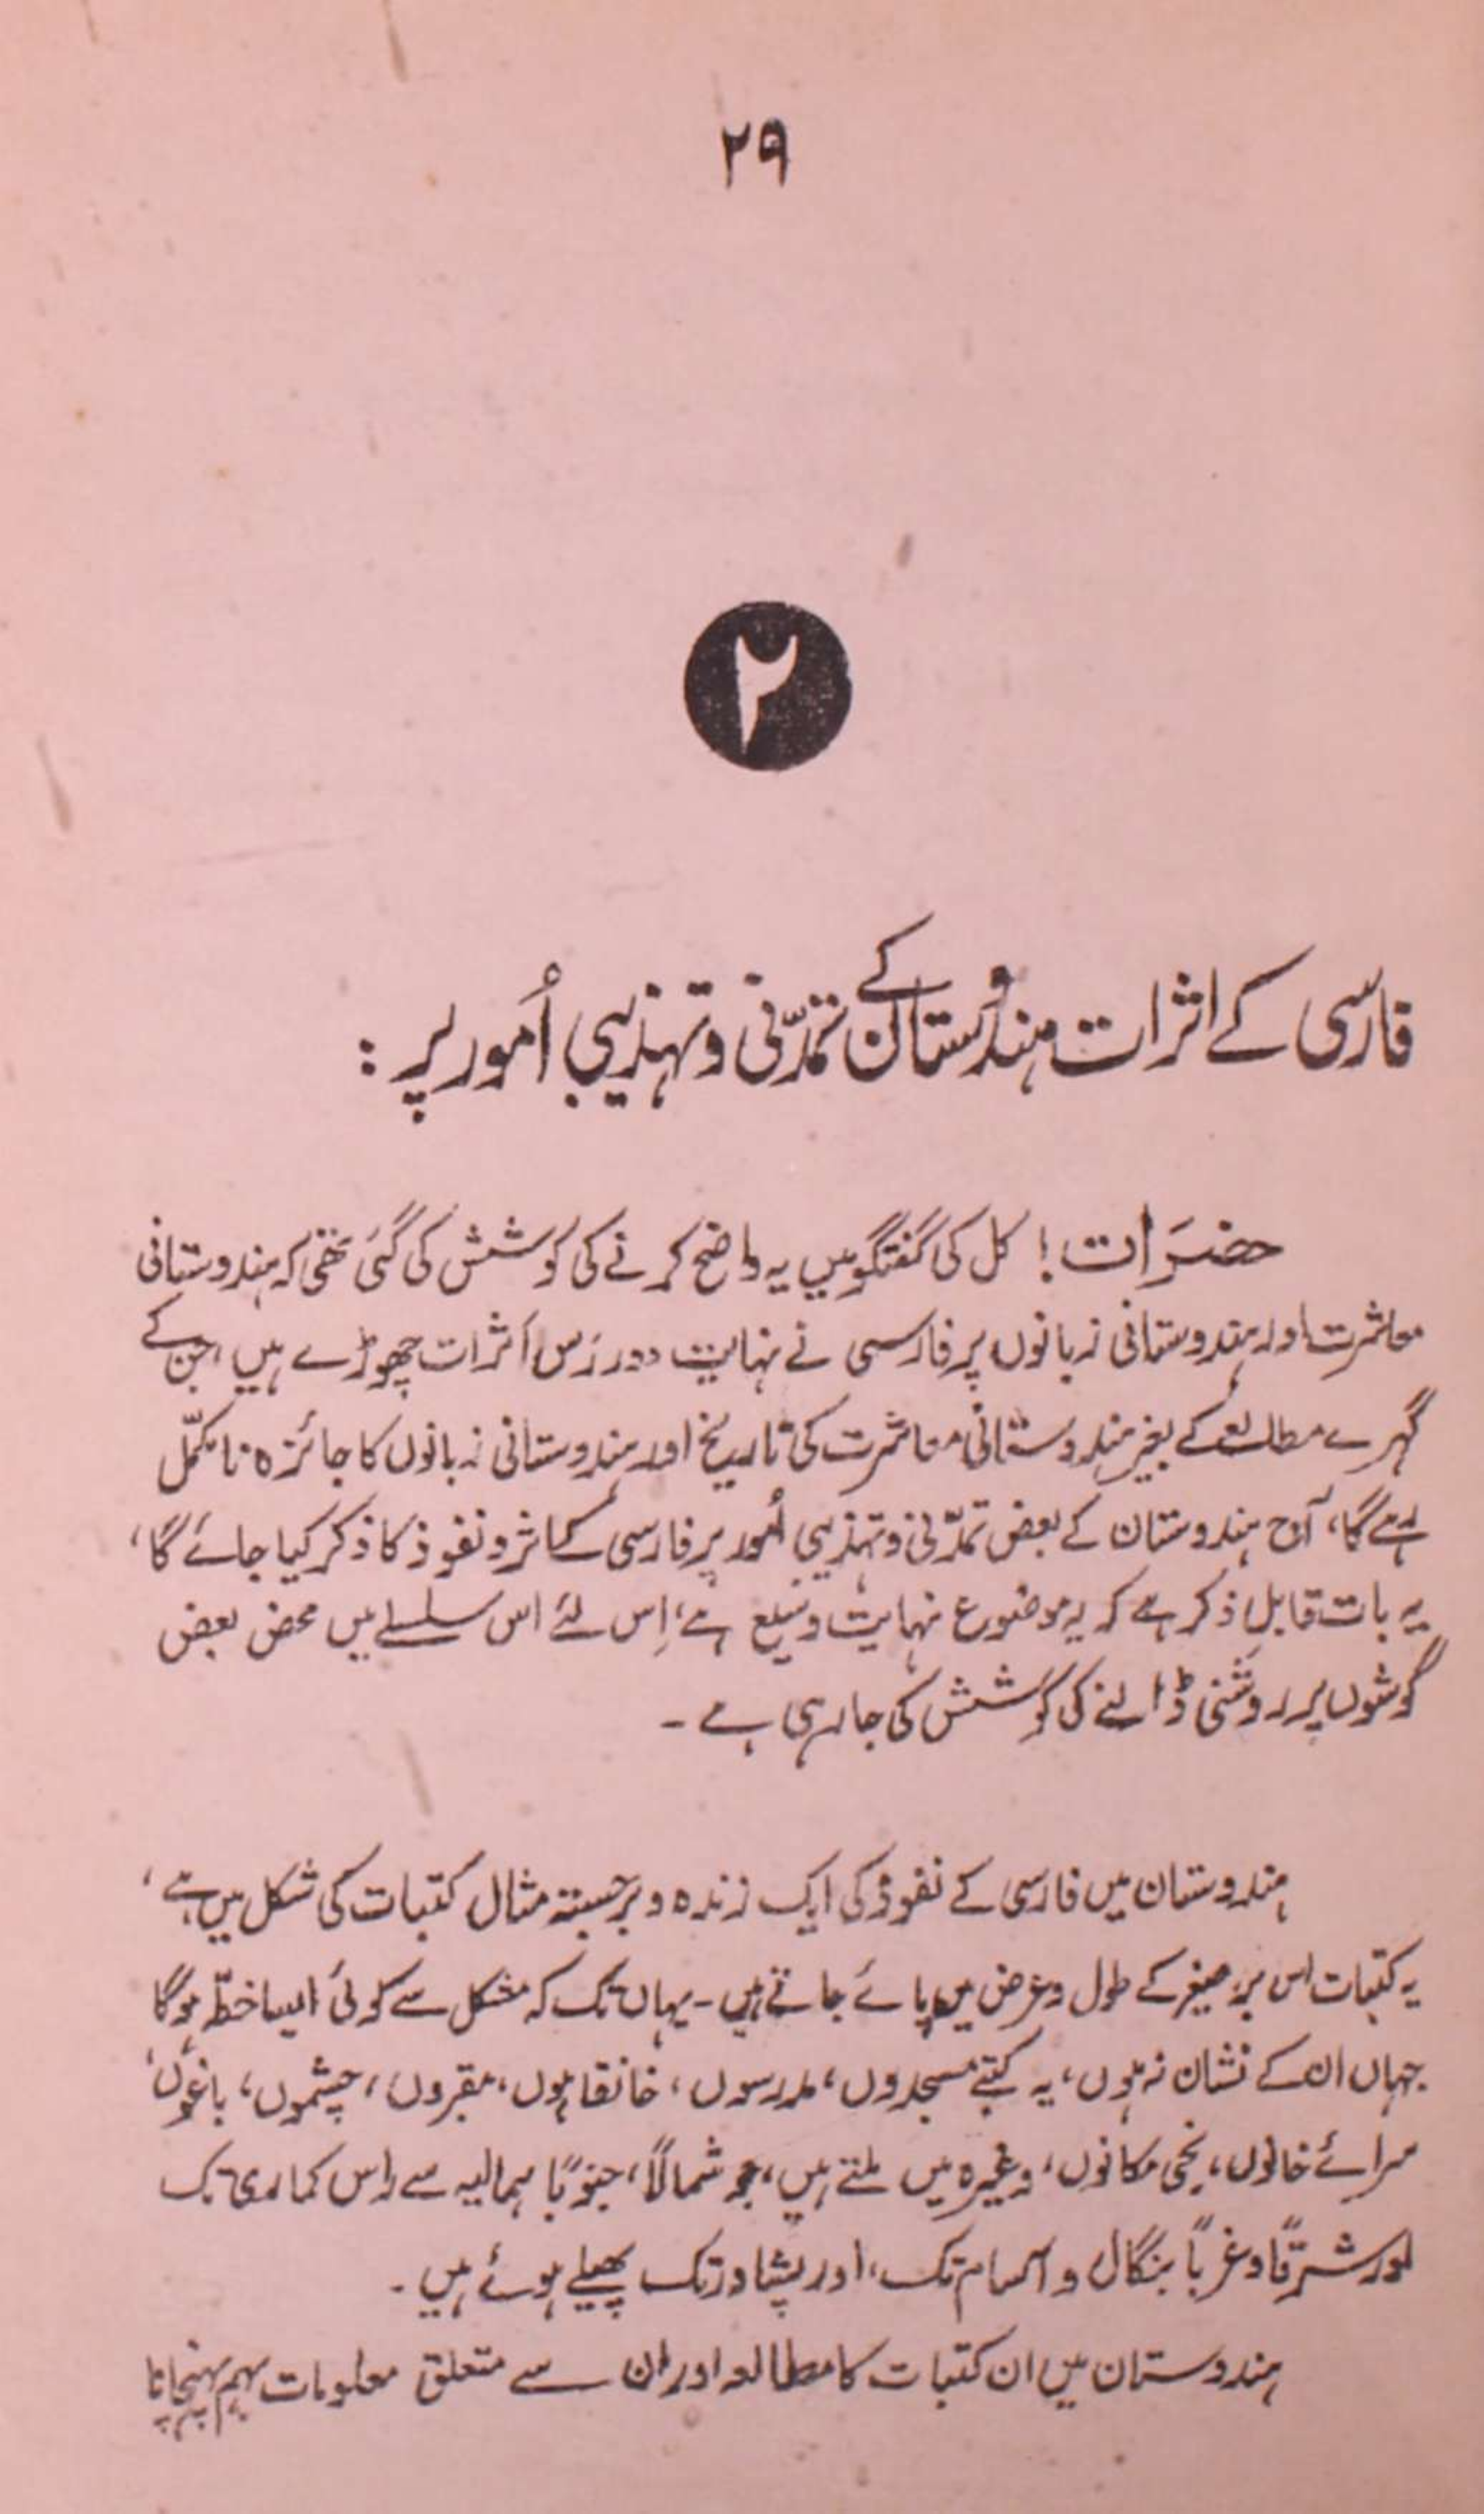 ۲۹
۲
فارسی کے اثرات ہندوستان کے تمدّنی و تہذیبی اُمور پر :
حضرَات ! کل کی گفتگو میں یہ واضح کرنے کی کوشش کی گئی تھی کہ ہندوستانی
معاشرت اور ہندوستانی زبانوں پر فارسی نے نہایت دور رَس اَثرات چھوڑے ہیں، جن کے
گہرے مطالعے کے بغیر ہندوستانی معاشرت کی تاریخ اور ہندوستانی زبانوں کا جائزہ نامکمّل
رہے گا، آج ہندوستان کے بعض تمدّنی و تہذیبی اُمور پر فارسی کے اثر و نفوذ کا ذکر کیا جائے گا،
یہ بات قابلِ ذکر ہے کہ یہ موضوع نہایت وسیع ہے، اِس لئے اس سلسلے میں محض بعض
گوشوں پر روشنی ڈالنے کی کوشش کی جارہی ہے ۔
ہندوستان میں فارسی کے نفوذ کی ایک زندہ و برجستہ مثال کتبات کی شکل میں ہے،
یہ کتبات اس برِ صغیر کے طول و عرض میں پائے جاتے ہیں ۔ یہاں تک کہ مشکل سے کوئی ایسا خطّہ ہوگا
جہاں ان کے نشان نہ ہوں، یہ کتبے مسجدوں، مدرسوں، خانقاہوں، مقبروں، چشموں، باغوں،
سرائے خانوں، نجی مکانوں، وغیرہ میں ملتے ہیں، جو شمالاً، جنوباً ہمالیہ سے راس کماری تک
اور شرقاً و غرباً بنگال و آسام تک، اور پشاور تک پھیلے ہوئے ہیں ۔
ہندوستان میں ان کتبات کا مطالعہ اور ان سے متعلق معلومات بہم پہنچانا